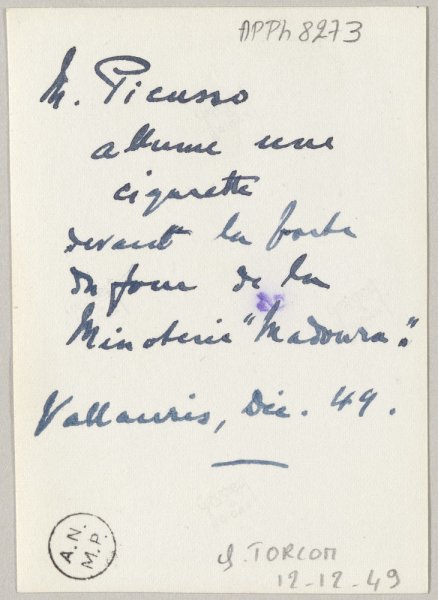 APPh 8273
M. Picasso
allume une
cigarette
devant la porte
du four de la
Minoterie "Madoura".
Vallauris, Déc. 49.
A.N.
M.P.
TORCOM
12-12-49